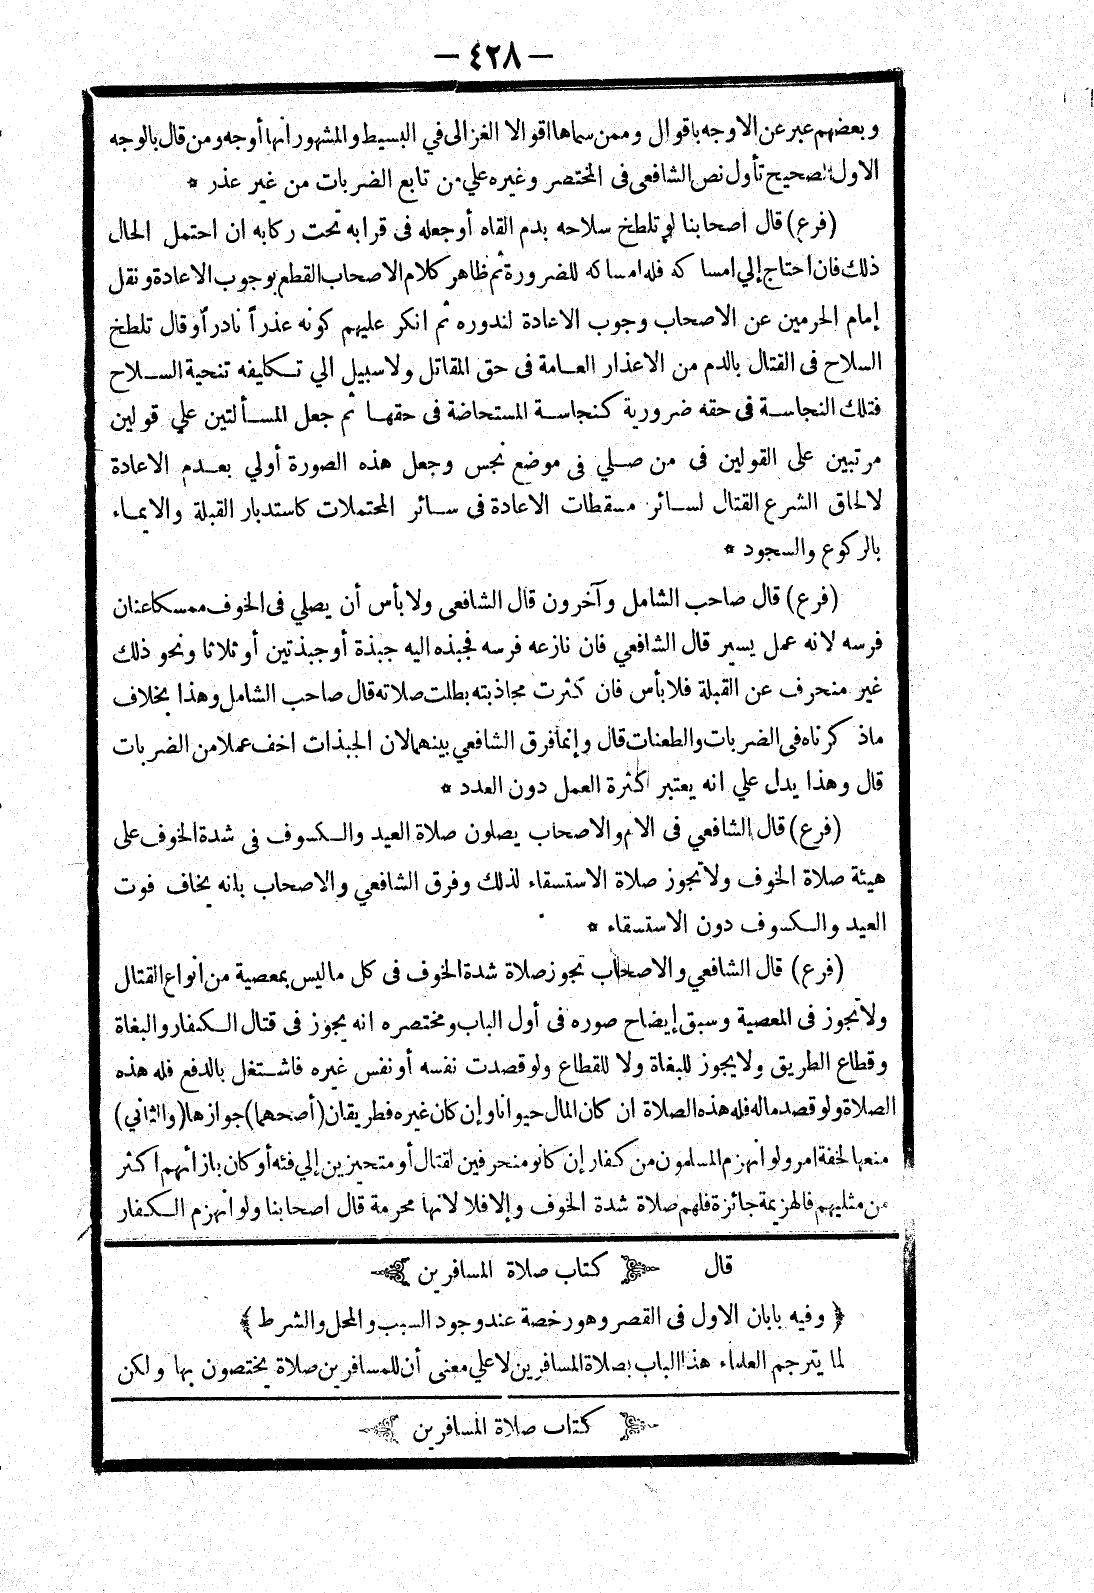 — ٤٢٨ —
وبعضهم عبر عن الاوجه باقوال وممن سماها اقوالا الغزالى في البسيط والمشهور انها أوجه ومن قال بالوجه
الاول الصحيح تأول نص الشافعى فى المختصر وغيره علي من تابع الضربات من غير عذر *
(فرع) قال اصحابنا لو تلطخ سلاحه بدم القاه أو جعله فى قرابه تحت ركابه ان احتمل الحال
ذلك فان احتاج إلي امساكه فله امساكه للضرورة ثم ظاهر كلام الاصحاب القطع بوجوب الاعادة ونقل
إمام الحرمين عن الاصحاب وجوب الاعادة لندوره ثم انكر عليهم كونه عذراً نادراً وقال تلطخ
السلاح فى القتال بالدم من الاعذار العامة فى حق المقاتل ولا سبيل الي تكليفه تنحية السلاح
فتلك النجاسة فى حقه ضرورية كنجاسة المستحاضة فى حقها ثم جعل المسألتين علي قولين
مرتبين على القولين فى من صلي فى موضع نجس وجعل هذه الصورة أولي بعدم الاعادة
لالحاق الشرع القتال لسائر مسقطات الاعادة فى سائر المحتملات كاستدبار القبلة والايماء
بالركوع والسجود *
(فرع) قال صاحب الشامل وآخرون قال الشافعى ولا بأس أن يصلي فى الخوف ممسكا عنان
فرسه لانه عمل يسير قال الشافعي فان نازعه فرسه فجبذه اليه جبذة أو جبذتين أو ثلاثا ونحو ذلك
غير منحرف عن القبلة فلا بأس فان كثرت مجاذبته بطلت صلاته قال صاحب الشامل وهذا بخلاف
ماذكرناه فى الضربات والطعنات قال وإنما فرق الشافعي بينهما لان الجبذات اخف عملا من الضربات
قال وهذا يدل علي انه يعتبر اكثرة العمل دون العدد *
(فرع) قال الشافعي فى الام والاصحاب يصلون صلاة العيد والكسوف فى شدة الخوف على
هيئة صلاة الخوف ولا تجوز صلاة الاستسقاء لذلك وفرق الشافعي والاصحاب بانه يخاف فوت
العيد والكسوف دون الاستسقاء *
(فرع) قال الشافعي والاصحاب تجوز صلاة شدة الخوف فى كل ما ليس بمعصية من انواع القتال
ولا تجوز فى المعصية وسبق إيضاح صوره فى أول الباب ومختصره انه يجوز فى قتال الكفار والبغاة
وقطاع الطريق ولا يجوز للبغاة ولا للقطاع ولو قصدت نفسه أو نفس غيره فاشتغل بالدفع فله هذه
الصلاة ولو قصد ماله فله هذه الصلاة ان كان المال حيوانا وإن كان غيره فطريقان (أصحهما) جوازها (والثاني)
منعها لخفة امر ولو انهزم المسلمون من كفار إن كانو منحرفين لقتال أو متحيزين إلي فئه أو كان بازائهم اكثر
من مثليهم فالهزيمة جائزة فلهم صلاة شدة الخوف وإلا فلا لانها محرمة قال اصحابنا ولو انهزم الكفار
قال كتاب صلاة المسافرين
﴿ وفيه بابان الاول فى القصر وهو رخصة عند وجود السبب والمحل والشرط ﴾
لما يترجم العلماء هذا الباب بصلاة المسافرين لا علي معنى أن للمسافرين صلاة يختصون بها ولكن
كتاب صلاة المسافرين